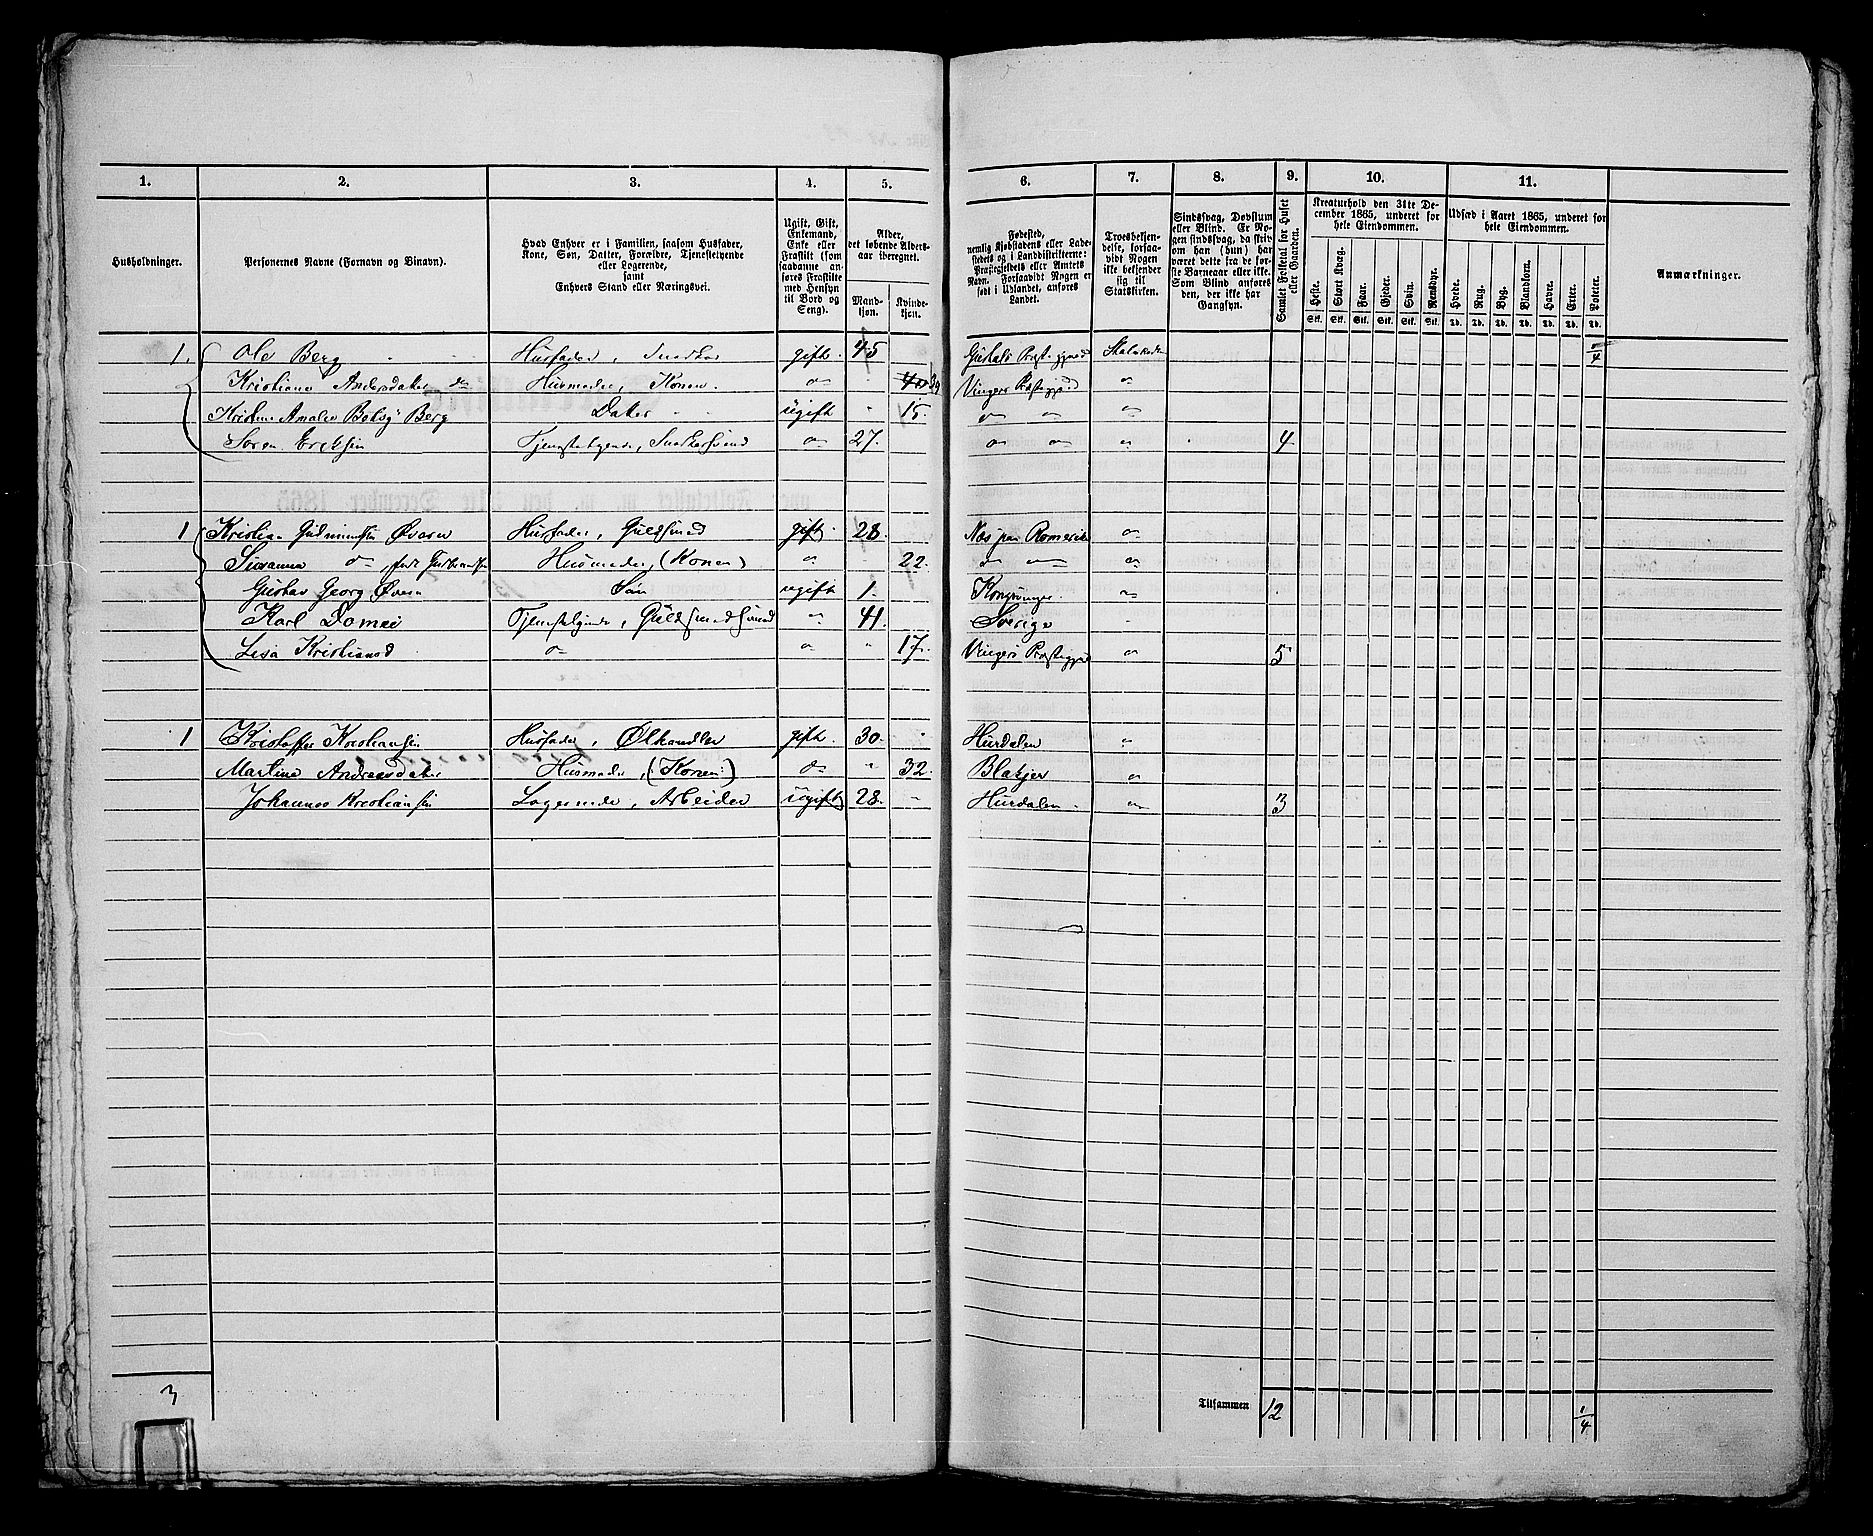 1. 2. 3. 4. 5. 6. 7. 8. 9. 10. 11.
Husholdninger.
Personernes Navne (Fornavn og Binavn).
Hvad Enhver er i Familien, saasom Husfader,
Kone, Søn, Datter, Forældre, Tjenestetyende
eller Logerende,
samt
Enhvers Stand eller Næringsvei.
Ugift, Gift,
Enkemand,
Enke eller
Fraskilt (som
saadanne an-
føres Fraskilte
med Hensyn
til Bord og
Seng).
Alder,
det løbende Alders-
aar iberegnet.
Mand-
kjøn.
Kvinde-
kjøn.
Fødested,
nemlig Kjøbstadens eller Lade-
stedets og i Landdistrikterne:
Præstegjeldets eller Amtets
Navn. Forsaavidt Nogen er
født i Udlandet, anføres
Landet.
Troesbekjen-
delse, forsaa-
vidt Nogen
ikke bekjender
sig til
Statskirken.
Sindssvag, Døvstum
eller Blind. Er No-
gen sindssvag, da skriv
om han (hun) har
været dette fra de før-
ste Barneaar eller ikke.
Som Blind anføres
den, der ikke har
Gangsyn.
Samlet Folketal for Huset
eller Gaarden.
Kreaturhold den 31te De-
cember 1865, underet for
hele Eiendommen.
Heste. Stort Kvæg. Faar. Gjeder. Svin. Rensdyr.
Stk. Stk. Stk. Stk. Stk. Stk.
Udsæd i Aaret 1865, underet for
hele Eiendommen.
Hvede. Rug. Byg. Blandkorn. Havre. Erter. Poteter.
Td. Td. Td. Td. Td. Td. Td.
Anmærkninger.
1. Ole Berg Husfader, Snedker gift 45 1/4
Kristiane Andersdater Husmoder, Konen 〃 40
Kristine Amalie Betsy Berg Dater ugift 15. 〃 〃 〃
Søren Eriksen Tjenestetyende, Snedkersvend 〃 27. 〃 〃 〃 4
1 Kristian Øvern Husfader, Guldsmed gift 28. Næs paa Romerike 〃
Susanna 〃, Husmoder, (Konen) 〃 22. 〃 〃 〃
Gustav Georg Øvern Søn ugift 1. Kongsvinger 〃
Karl Domei Tjenestetyende, Guldsmedsvend 〃 41 Sverige
Lisa 〃 〃 〃 17. Vingers Præstegjæld 〃 5
1 Kristoffer Kristiansen Husfader, Ølhandler gift 30. Hurdalen 〃
Martine Andreasdater Husmoder, (Konen) 〃 〃 32. Blakjer 〃
Johannes Kristiansen Logerende, Arbeider ugift 28. Hurdalen 〃 3
3
Tilsammen 12 1/4